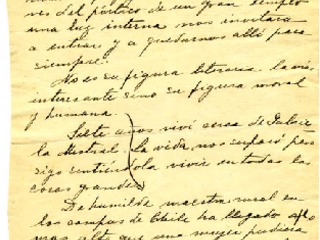 ves del pórtico de un gran templo
una luz interna nos invitara
a entrar y a quedarnos allí para
siempre.
No es su figura literaria la más
interesante sino su figura moral
y humana.
Siete años viví cerca de Gabrie
la Mistral. La vida nos separó pero
sigo sintiéndola vivir en todas las
cosas grandes.
De humilde maestra rural en
los campos de Chile ha llegado a lo
mas alto que una mujer pudiera